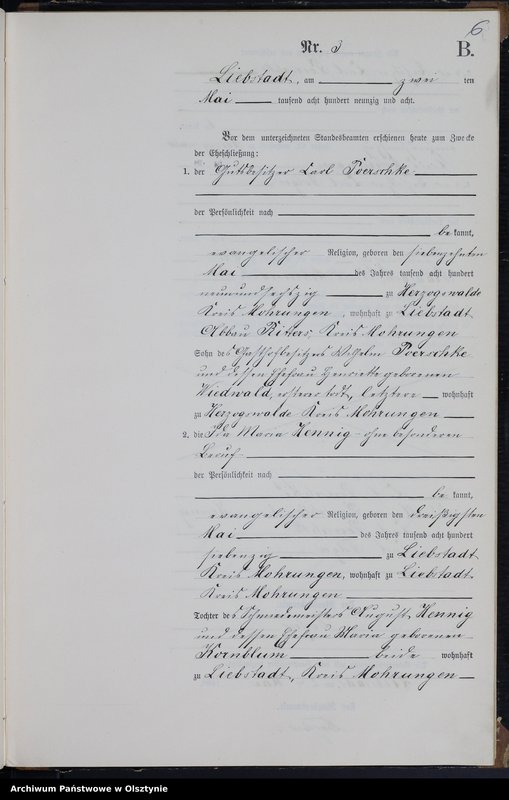 6
Nr. 3
B.
Liebstadt, am zwei ten
Mai tausend acht hundert neunzig und acht.
Vor dem unterzeichneten Standesbeamten erschienen heute zum Zwecke
der Eheschließung:
1. der Gutsbesitzer Carl Poerschke
der Persönlichkeit nach
be kannt,
evangelischer Religion, geboren den siebenzehnten
Mai des Jahres tausend acht hundert
neunundsechszig zu Herzogswalde
Kreis Mohrungen, wohnhaft zu Liebstadt
Abbau Ritters, Kreis Mohrungen
Sohn des Gasthofbesitzers Wilhelm Poerschke
und dessen Ehefrau Henriette geborenen
Wiedwald, ersterer todt, letztere wohnhaft
zu Herzogswalde Kreis Mohrungen
2. die Ida Maria Hennig ohne besonderen
Beruf
der Persönlichkeit nach
be kannt,
evangelischer Religion, geboren den dreißigsten
Mai des Jahres tausend acht hundert
siebenzig zu Liebstadt
Kreis Mohrungen, wohnhaft zu Liebstadt
Kreis Mohrungen
Tochter des Schmiedemeisters August Hennig
und dessen Ehefrau Maria geborenen
Kornblum beide wohnhaft
zu Liebstadt, Kreis Mohrungen
Archiwum Państwowe w Olsztynie